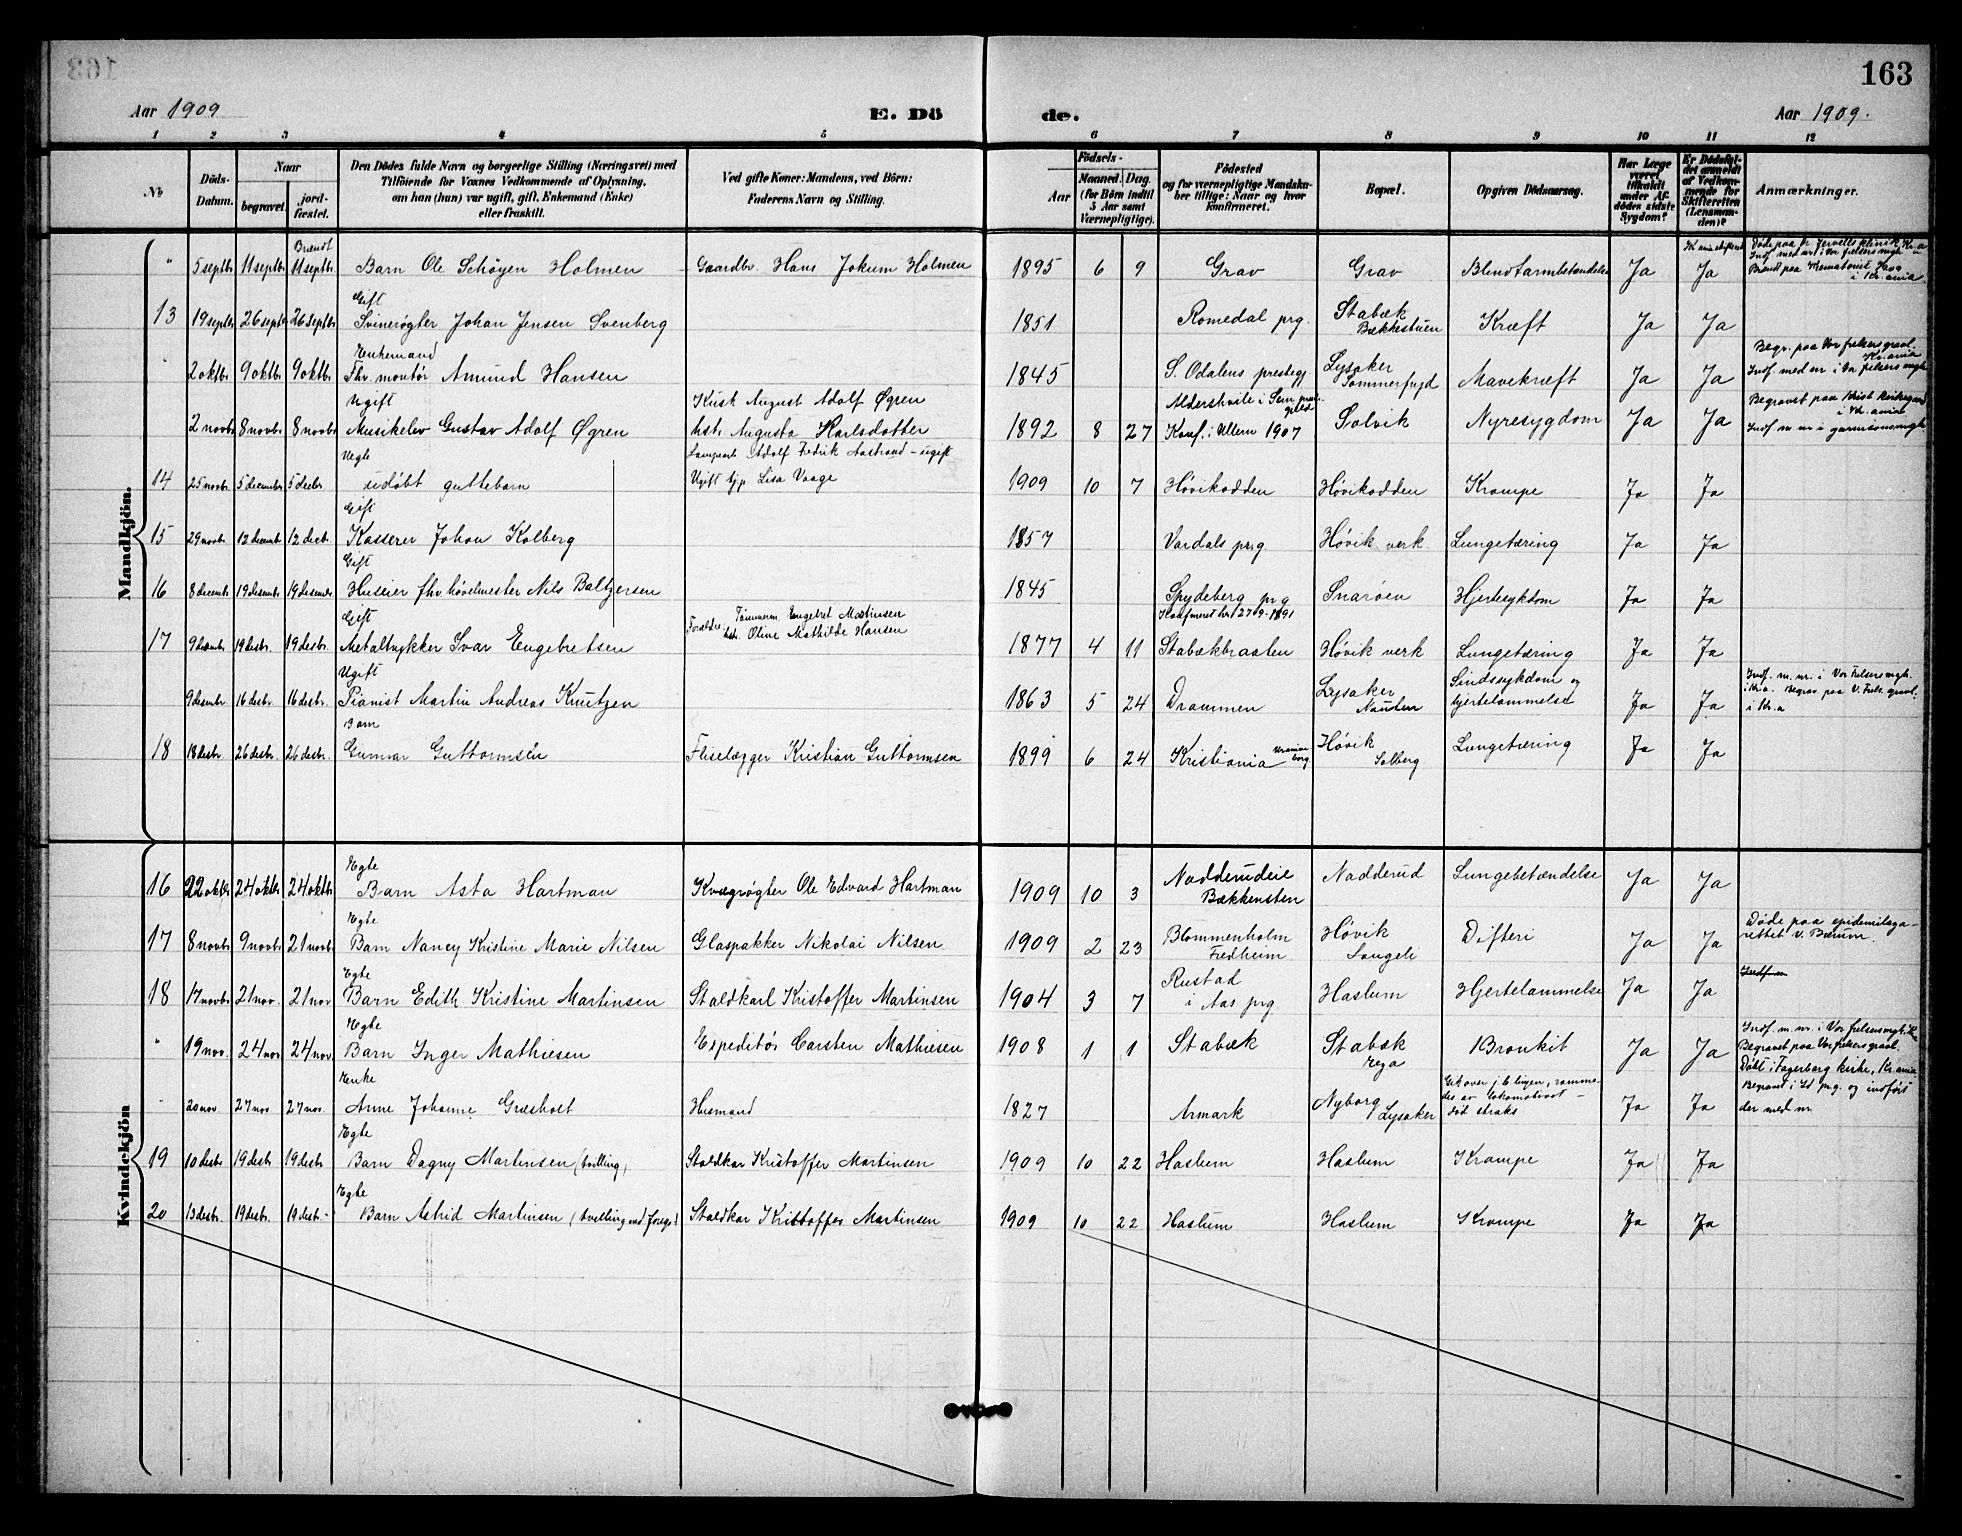 163
Aar 1909 E. Dö de. Aar 1909.
1 2 3 4 5 6 7 8 9 10 11 12
No
Döds-Datum.
Naar
begravet.
jord-fæstet.
Den Dödes fulde Navn og borgerlige Stilling (Næringsvei) med
Tilföiende for Voxnes Vedkommende af Oplysning,
om han (hun) var ugift, gift, Enkemand (Enke)
eller fraskilt.
Ved gifte Koner: Mandens, ved Börn:
Faderens Navn og Stilling.
Födsels-
Aar
Maaned. Dag.
(for Börn indtil
5 Aar samt
Værnepligtige).
Födested
og for værnepligtige Mandska-
ber tillige: Naar og hvor
konfirmeret.
Bopæl.
Opgiven Dödsaarsag.
Har Læge
været
tilkaldt
under Af-
dödes sidste
Sygdom?
Er Dödsfal-
det anmeldt
af Vedkom-
mende for
Skifteretten
(Lensman-
den)?
Anmærkninger.
Mandkjön.
Brændt
" 5 septbr 11 septbr 11 septbr Barn Ole Schøyen Holmen Gaardbr. Hans Jokum Holmen 1895 6 9 Grav Grav Blindtarmbetændelse Ja Ja
Døde paa Dr Jervells klinik, Kr.a
Indf. med nr i Vor frelsers mgh
Brænd paa Krematoriet
i Kr.ania
Gift
13 19 septbr 26 septbr 26 septbr Svinerøgter Johan Jensen Svenberg 1851 Romedal prg. Stabæk Bækkestuen Kræft Ja Ja
Enkemand
" 2 oktbr 9 oktbr 9 oktbr Fhv. montør Amund Hansen 1845 S. Odalens prestegj Lysaker Sommerfryd Mavekræft Ja Ja
Begr. paa Vor frelsers gravl.
Kr.ania
Indf. med nr i Vor frelsers mgh
Ugift
2 novbr 8 novbr 8 novbr Musikelev Gustav Adolf Øgren
Kusk August Adolf Øgren
hstr. Augusta Karlsdatter
1892 8 27
Aldershvile i Sem præste
gjeld
Konf. i Ullern 1907 Solvik Nyresygdom Ja Ja
Begravet paa Krist kirkegaard
i Kr.ania
Indf m nr i garnisonsmgh
Uegte
14 25 novbr 5 decembr 5 decbr udøbt guttebarn
Adolf Fredrik Aastrand - ugift
Ugift tjp Lisa Vaage
1909 10 7 Høvikodden Høvikodden Krampe Ja Ja
Gift
15 29 novbr 12 decembr 12 decb. Kasserer Johan Kolberg 1857 Vardals prg. Høvik verk Lungetæring Ja Ja
Gift
16 8 decembr 19 desembr 19 desembr Huseier fhv. høvelmester Nils Baltzersen 1845 Spydeberg prg Snarøen Hjertesykdom Ja Ja
Gift
17 9 decembr 19 desbr. 19 desbr. Metaltrykker Ivar Engebretsen
Forældre: Tømmerm. Engebret Martinsen
hstr. Oline Mathilde Hansen
1877 4 11
Konfirmeret hos 27/9-1891
Stabækbraaten Høvik verk Lungetæring Ja Ja
Ugift
9 desembr 16 desbr. 16 desbr. Pianist Martin Andreas Knutzen 1863 5 24 Drammen Lysaker Nauten
Sindssykdom og
hjertelammelse
Ja Ja
Indf. m. nr. i Vor Frelsers mgh.
i Kr.a. Begrav. paa V. Frels. gravl.
i Kr.a
Barn
18 18 desbr 26 desbr. 26 desbr. Gunnar Guttormsen Fliselægger Kristian Guttormsen 1899 6 24 Kristiania Uranien borg Høvik Solberg Lungetæring Ja Ja
Kvindekjön
Egte
16 22 oktbr 24 oktbr 24 oktbr Barn Asta Hartman Kvægrøgter Ole Edvard Hartman 1909 10 3 Nadderudeie Bækkensten Nadderud Lungebetændelse Ja Ja
Egte
17 8 novbr 9 novbr 21 novbr Barn Nancy Kristine Marie Nilsen Glaspakker Nikolai Nilsen 1909 2 23 Blommenholm Fredheim Høvik Sangeli Difteri Ja Ja
Døde paa epidemilaza-
rettet V. Bærum.
Egte
18 17 novbr 21 nov. 21 nov Barn Edith Kristine Martinsen Staldkarl Kristoffer Martinsen 1904 3 7 Rustad i Aas prg. Haslum Hjertelammelse Ja Ja
Indf m
Egte
" 19 nov. 24 nov 24 nov. Barn Inger Mathiesen Expeditør Carsten Mathiesen 1908 1 1 Stabæk Stabæk Bronkit Ja Ja
Indf. m. nr. i Vor frelsers mgh.
Begravet paa Vor frelsers gravl.
Døbt i Fagerborg kirke, Kr.ania
Enke
" 20 nov 27 nov 27 nov. Anne Johanne Græsholt Husmand 1827 Aremark Nyborg Lysaker
Gik over j.b.linjen, ramme-
des av lokomotivet -
død straks
Ja Ja
Begravd i Id prg. og indført
der med nr
Egte
19 10 desbr 19 desbr 19 desbr. Barn Dagny Martinsen (tvilling) Staldkar Kristoffer Martinsen 1909 10 22 Haslum Haslum Krampe Ja Ja
Egte
20 13 desbr. 19 desbr. 19 desbr. Barn Astrid Martinsen (tvilling med foreg.) Staldkar Kristoffer Martinsen 1909 10 22 Haslum Haslum Krampe Ja Ja